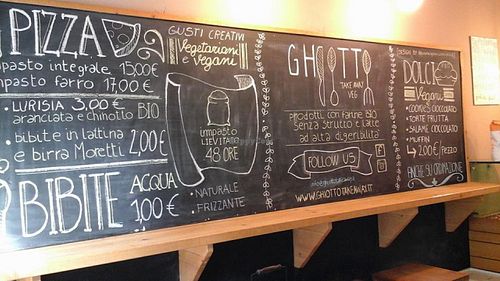 PIZZA
impasto integrale 15,00€
impasto farro 17,00€
• LURISIA 3,00€
aranciata e chinotto BIO
• bibite in lattina
e birra Moretti 2,00€
BIBITE
ACQUA
1,00€
• NATURALE
• FRIZZANTE
GUSTI CREATIVI
Vegetariani
e Vegani
impasto
LIEVITATO
48 ORE
GHIOTTO
TAKE AWAY
VEG
prodotti con farine BIO
senza strutto e latte
ad alta digeribilità
FOLLOW US
WWW.GHIOTTOTAKEAWAY.IT
DOLCI
Vegani
• COOKIES CIOCCOLATO
• TORTE FRUTTA
• SALAME CIOCCOLATO
• MUFFIN
2,00€/Pezzo
ANCHE SU ORDINAZIONE